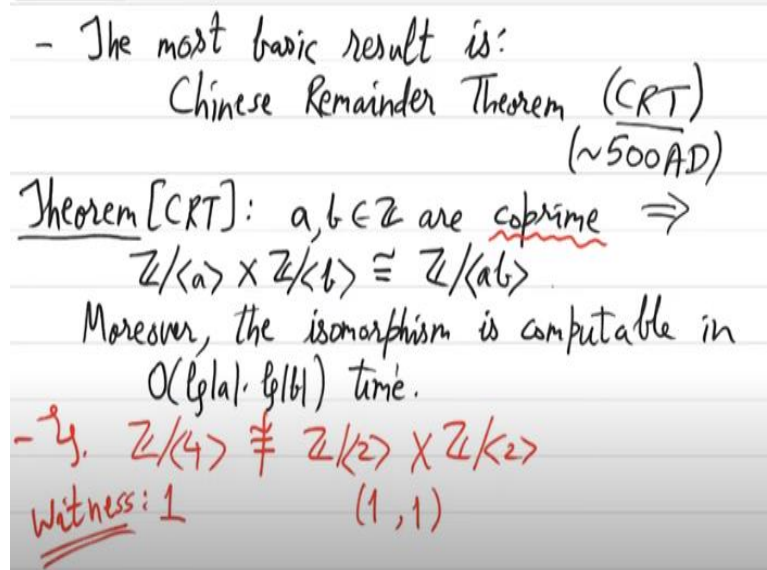 - The most basic result is:
Chinese Remainder Theorem (CRT)
(~500AD)
Theorem [CRT]: a,b ∈ ℤ are coprime ⇒
ℤ/<a> × ℤ/<b> ≅ ℤ/<ab>.
Moreover, the isomorphism is computable in
O(lg|a|. lg|b|) time.
- Eg. ℤ/<4> ≇ ℤ/<2> × ℤ/<2>
Witness: 1 (1,1)